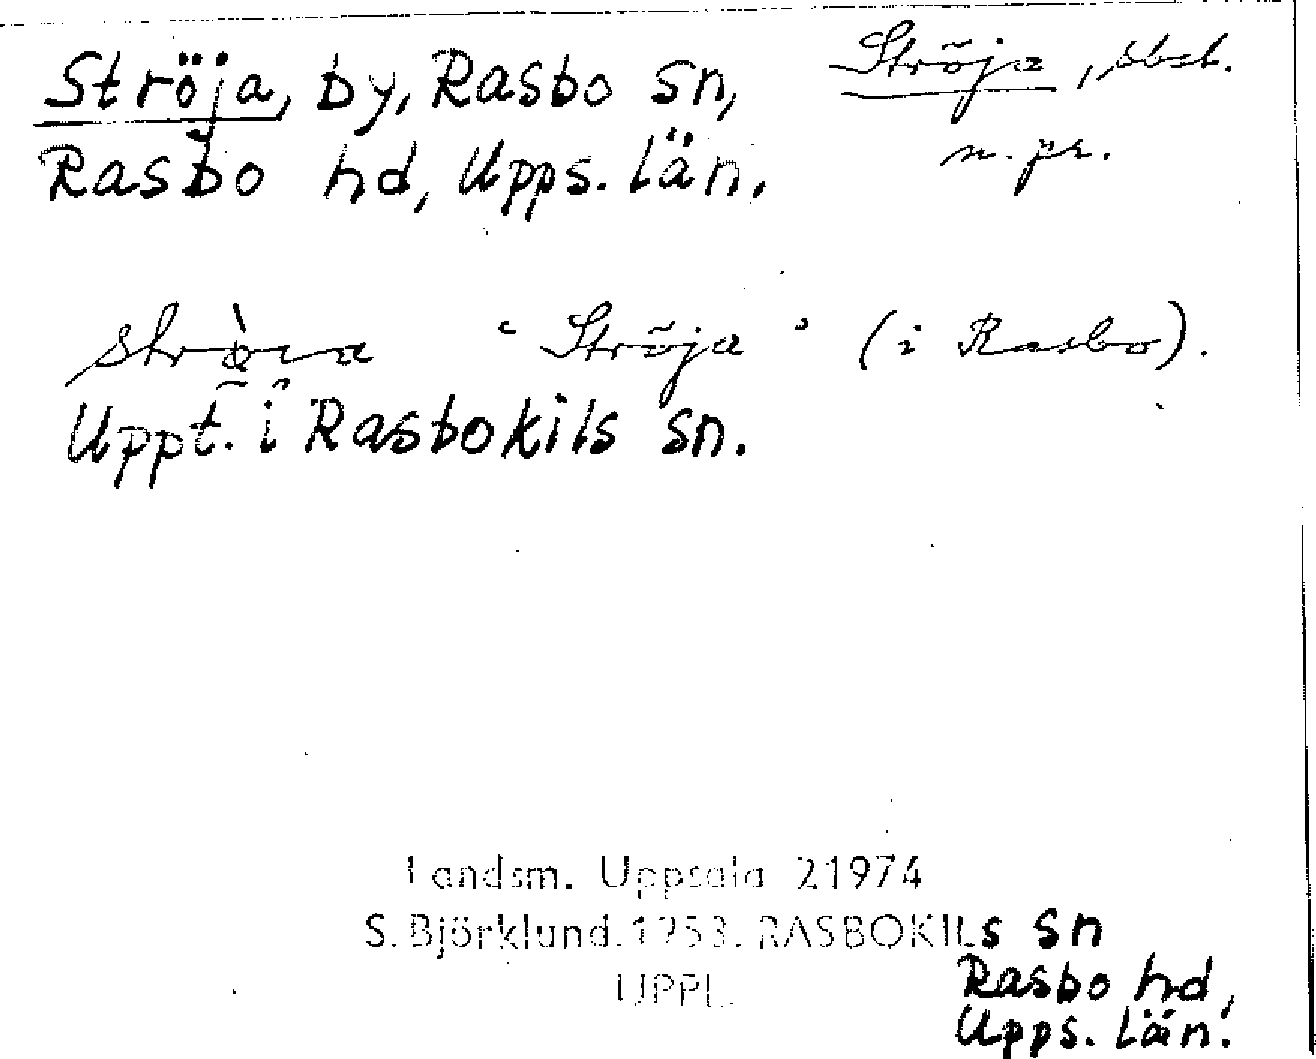 Ströja, by, Rasbo sn,
Rasbo hd, Upps. län.
Ströja, sbst.
n. pr.
"Ströja" (i Rasbo).
Uppt. i Rasbokils sn.
Landsm. Uppsala 21974
S. Björklund. 1953. RASBOKILs sn
UPPL.
Rasbo hd,
Upps. län.